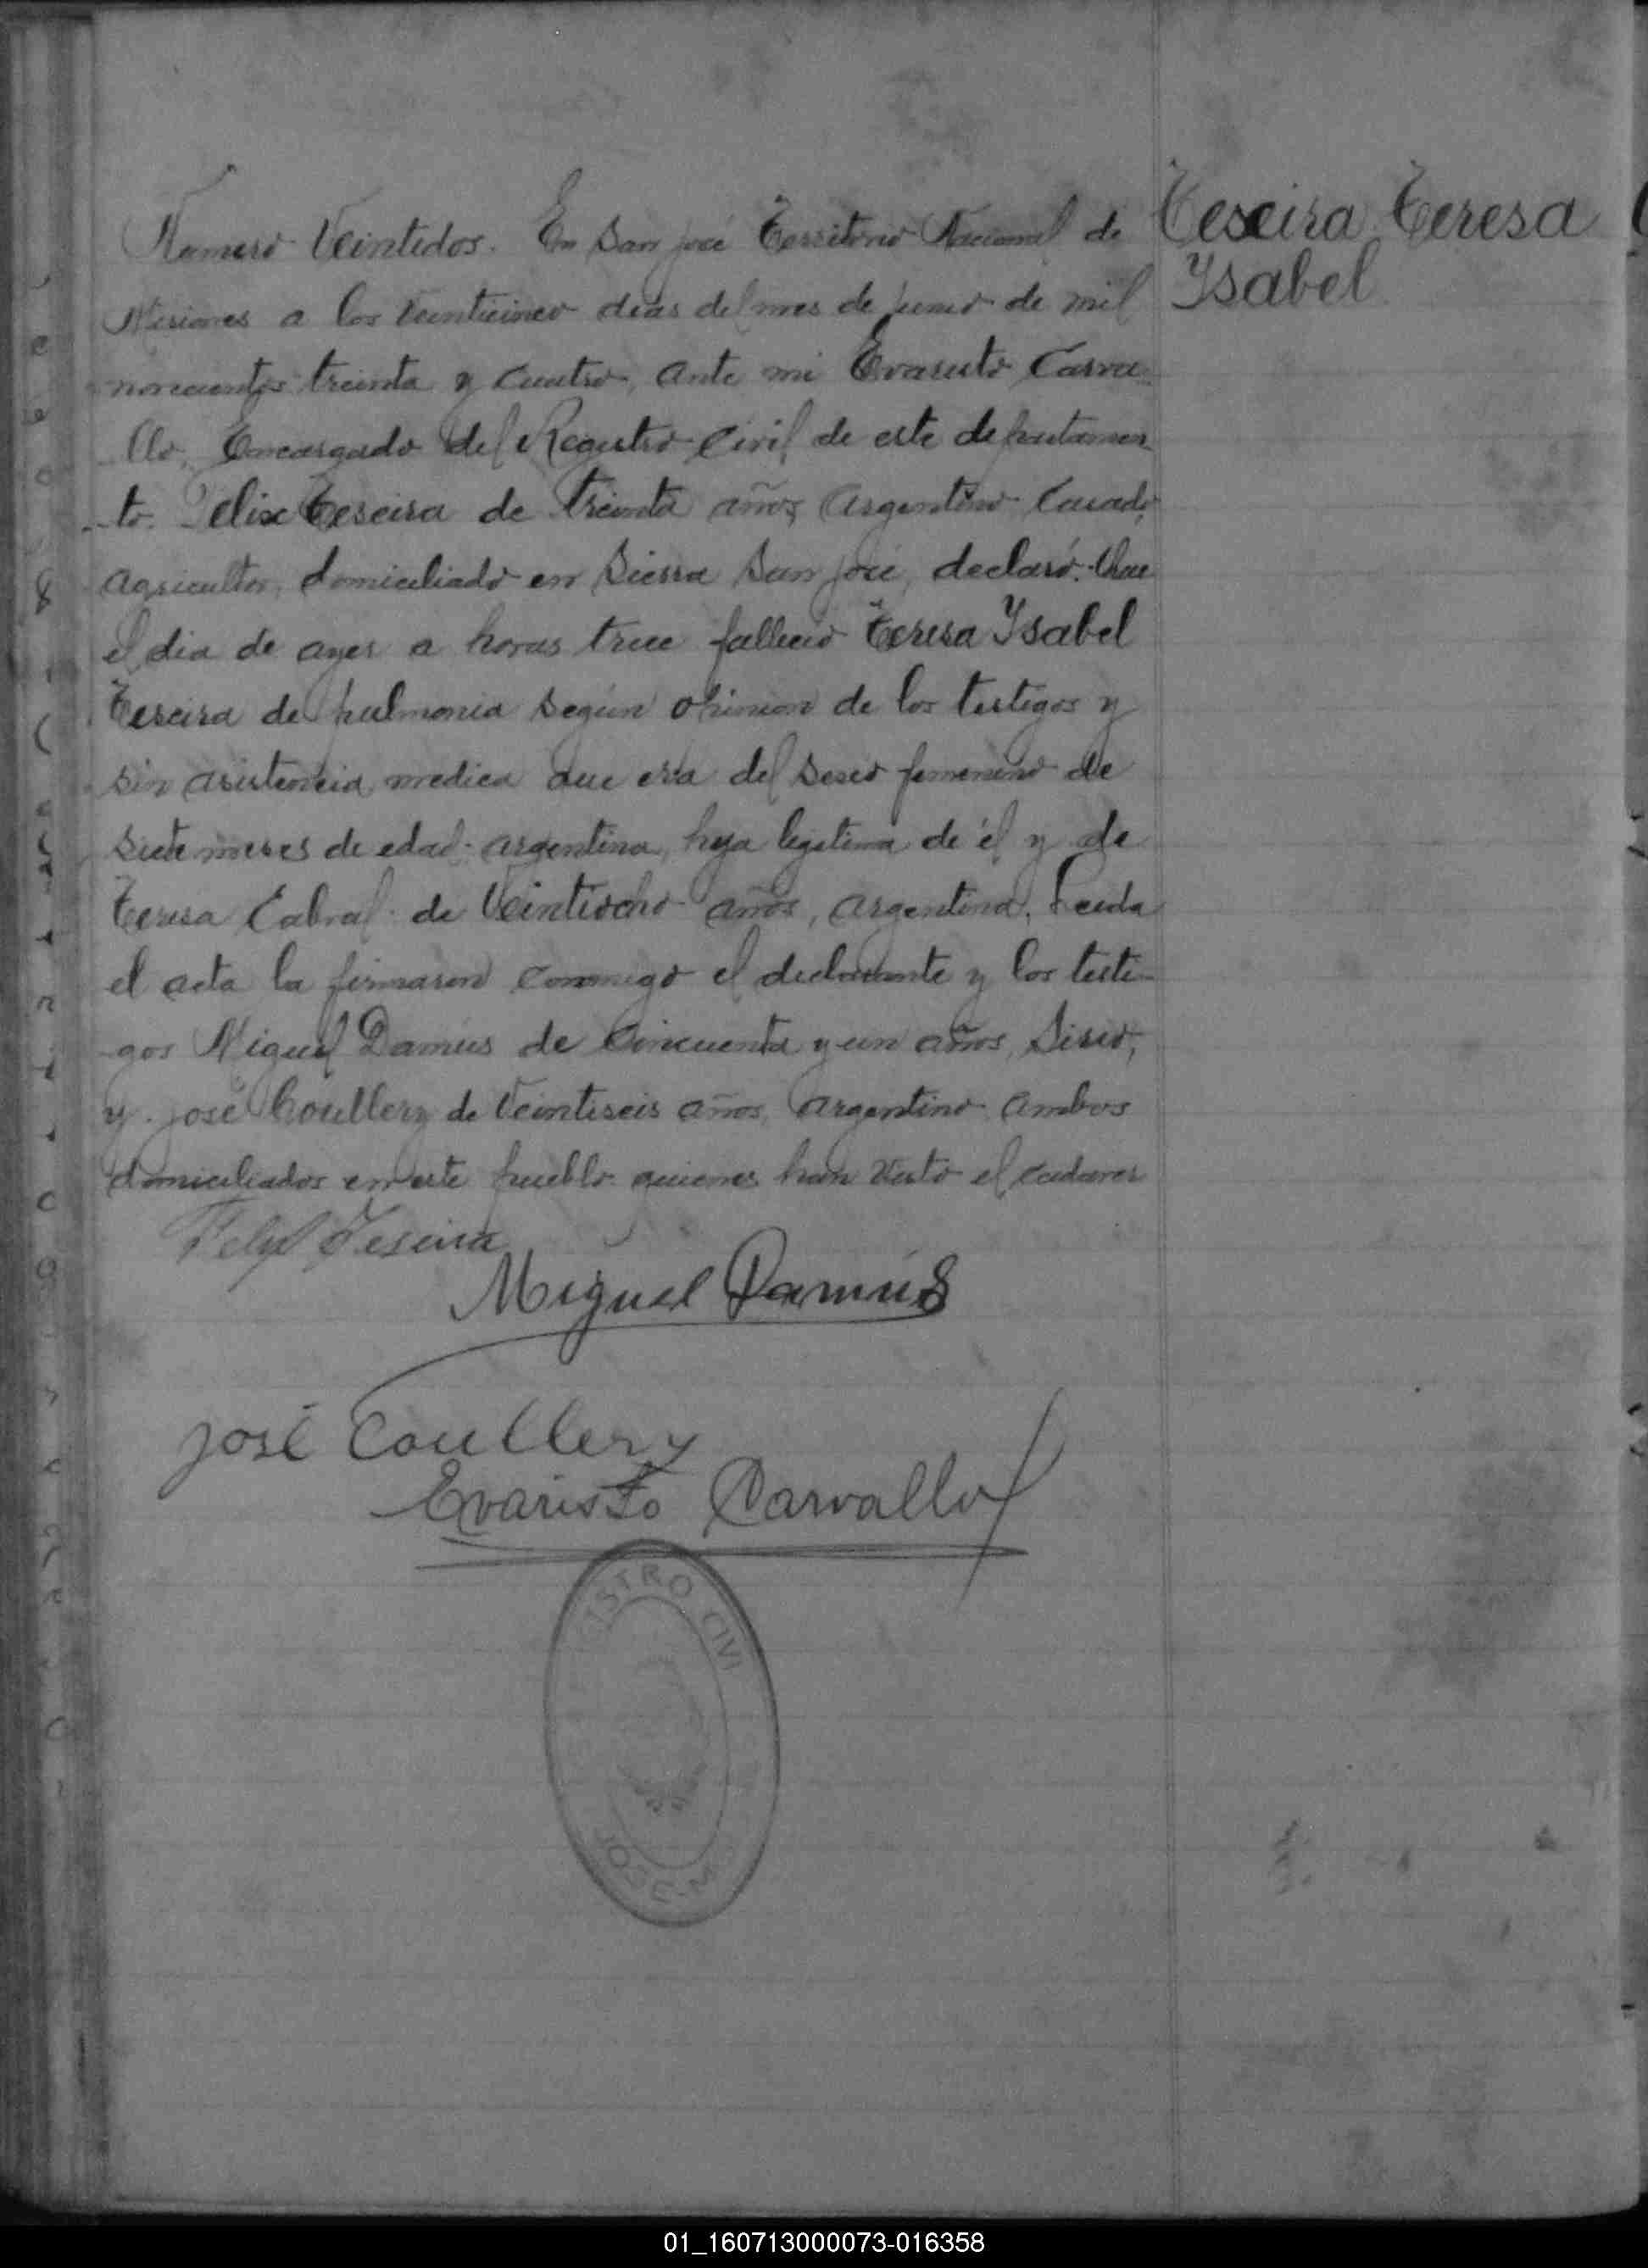 Texeira Teresa
Ysabel
Numero Veintidos. En San José Territorio Nacional de
Misiones a los veinticinco dias del mes de junio de mil
novecientos treinta y cuatro, ante mi Evaristo Carva-
llo, Encargado del Registro Civil de este departamen-
to Felix Texeira de treinta años, Argentino Casado,
agricultor, domiciliado en Sierra San José, declaró: Que
el dia de ayer a horas trece falleció Teresa Ysabel
Texeira de pulmonia según opinion de los testigos y
sin asistencia medica que era del sexo femenino de
siete meses de edad argentina, hija legitima de él y de
Teresa Cabral de Veintiocho años, argentina. Leida
el acta la firmaron conmigo el declarante y los testi-
gos Miguel Damús de Cincuenta y un años, Sirio,
y José Coullery de Veintiseis años, argentino ambos
domiciliados en este pueblo quienes han visto el cadaver
Felix Texeira
Miguel Damús
José Coullery
Evaristo Carvallo
ISTRO CIVI
JOSE-M
01_160713000073-016358